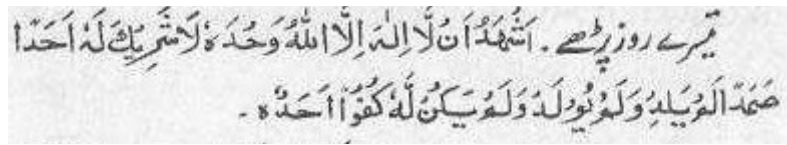 تیسرے روز پڑھے ۔ اَشْهَدُ اَنْ لَّا اِلٰهَ اِلَّا اللّٰهُ وَحْدَهٗ لَا شَرِيْكَ لَهٗ اَحَدًا
صَمَدًا لَمْ يَلِدْ وَلَمْ يُوْلَدْ وَلَمْ يَكُنْ لَّهٗ كُفُوًا اَحَدٌ ہ ۔